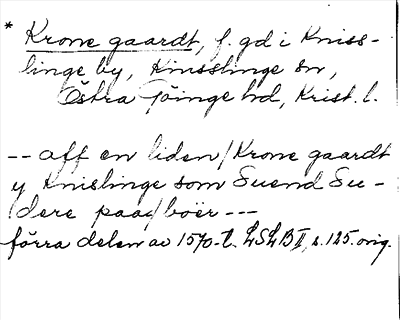 * Krone gaardt, f. gd i Kniss-
linge by, Knisslinge sn,
Östra Göinge hd, Krist. l.
-- aff en liden / Krone gaardt
y Knislinge som Suend Su-
dere paa / boër ---
förra delen av 1570-t. LSLB II, s. 125. orig.